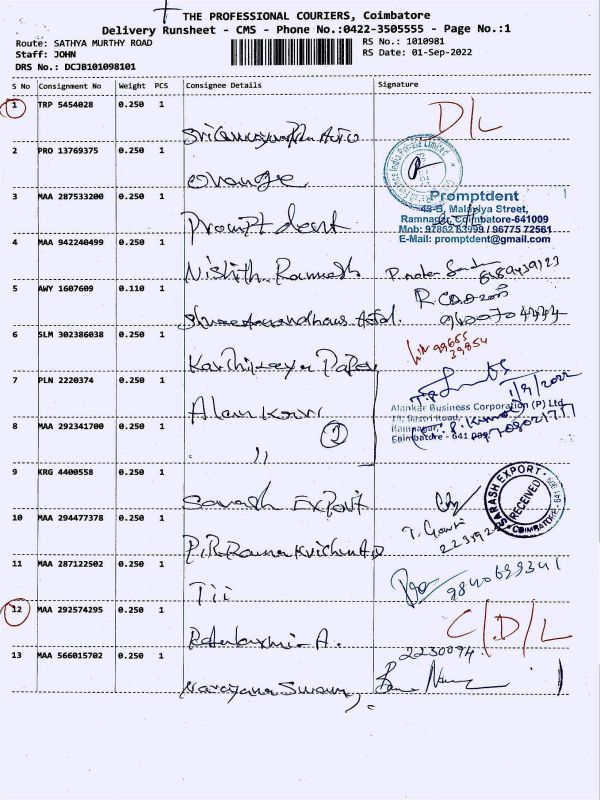 THE PROFESSIONAL COURIERS, Coimbatore
Delivery Runsheet - CMS - Phone No.:0422-3505555 - Page No.:1
Route: SATHYA MURTHY ROAD
RS No.: 1010981
Staff: JOHN
RS Date: 01-Sep-2022
DRS No.: DCJB101098101
S No Consignment No Weight PCS Consignee Details Signature
1 TRP 5454028 0.250 1
D/L
2 PRO 13769375 0.250 1
Orange
3 MAA 287533200 0.250 1
Promptdent
43-B, Malaviya Street,
Ramnagar, Coimbatore-641009
Mob: 97862 83999 / 96775 72561
E-Mail: promptdent@gmail.com
Prompt dent
4 MAA 942240499 0.250 1
Nishith Ramesh
5 AWY 1607609 0.110 1
9600704444
6 SLM 302386038 0.250 1
99655
39854
Karthikeya Paper
7 PLN 2220374 0.250 1
1/9/2022
Alankar
Alankar Business Corporation (P) Ltd
Ramnagar,
Coimbatore - 641 009
8 MAA 292341700 0.250 1
2
"
9 KRG 4400558 0.250 1
Sarash Export
SARASH EXPORT
RECEIVED
COIMBATORE
10 MAA 294477378 0.250 1
T. Gowri
P.R. Ramakrishnan
11 MAA 287122502 0.250 1
9840699341
Tii
12 MAA 292574295 0.250 1
C/D/L
Rathalaxmi A.
13 MAA 566015702 0.250 1
2230094
Narayana Swamy